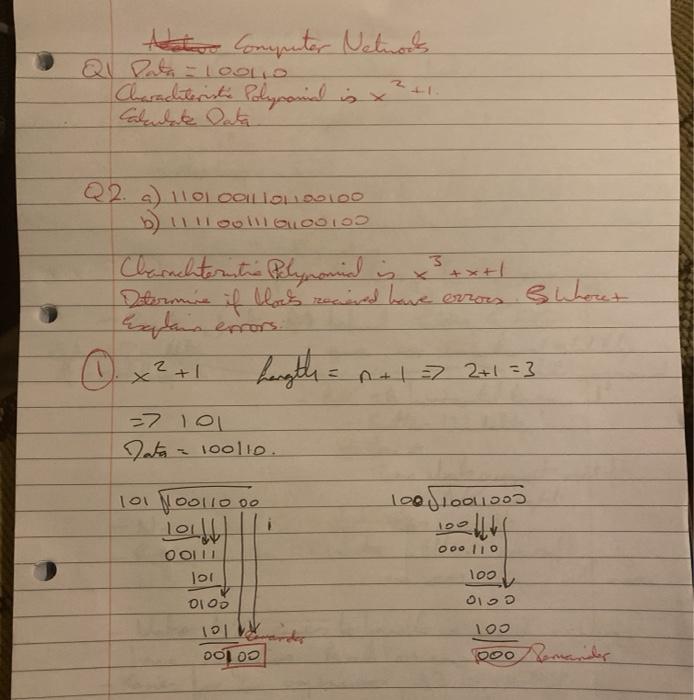 Computer Networks
Q1 Data = 100110
Charachteristic Polynomial is x² + 1.
Calculate Data
Q2. a) 1101001101100100
b) 1111001110110010
Charachteristic Polynomial is x³ + x + 1
Determine if block recieved have errors. & Where +
Explain errors.
① x² + 1 Length = n + 1 => 2+1 = 3
=> 101
Data = 100110.
101 √10011000 100 √10011000
101 100
00111 000110
101 100
0100 0100
101 Remainder 100
00100 000 Remainder